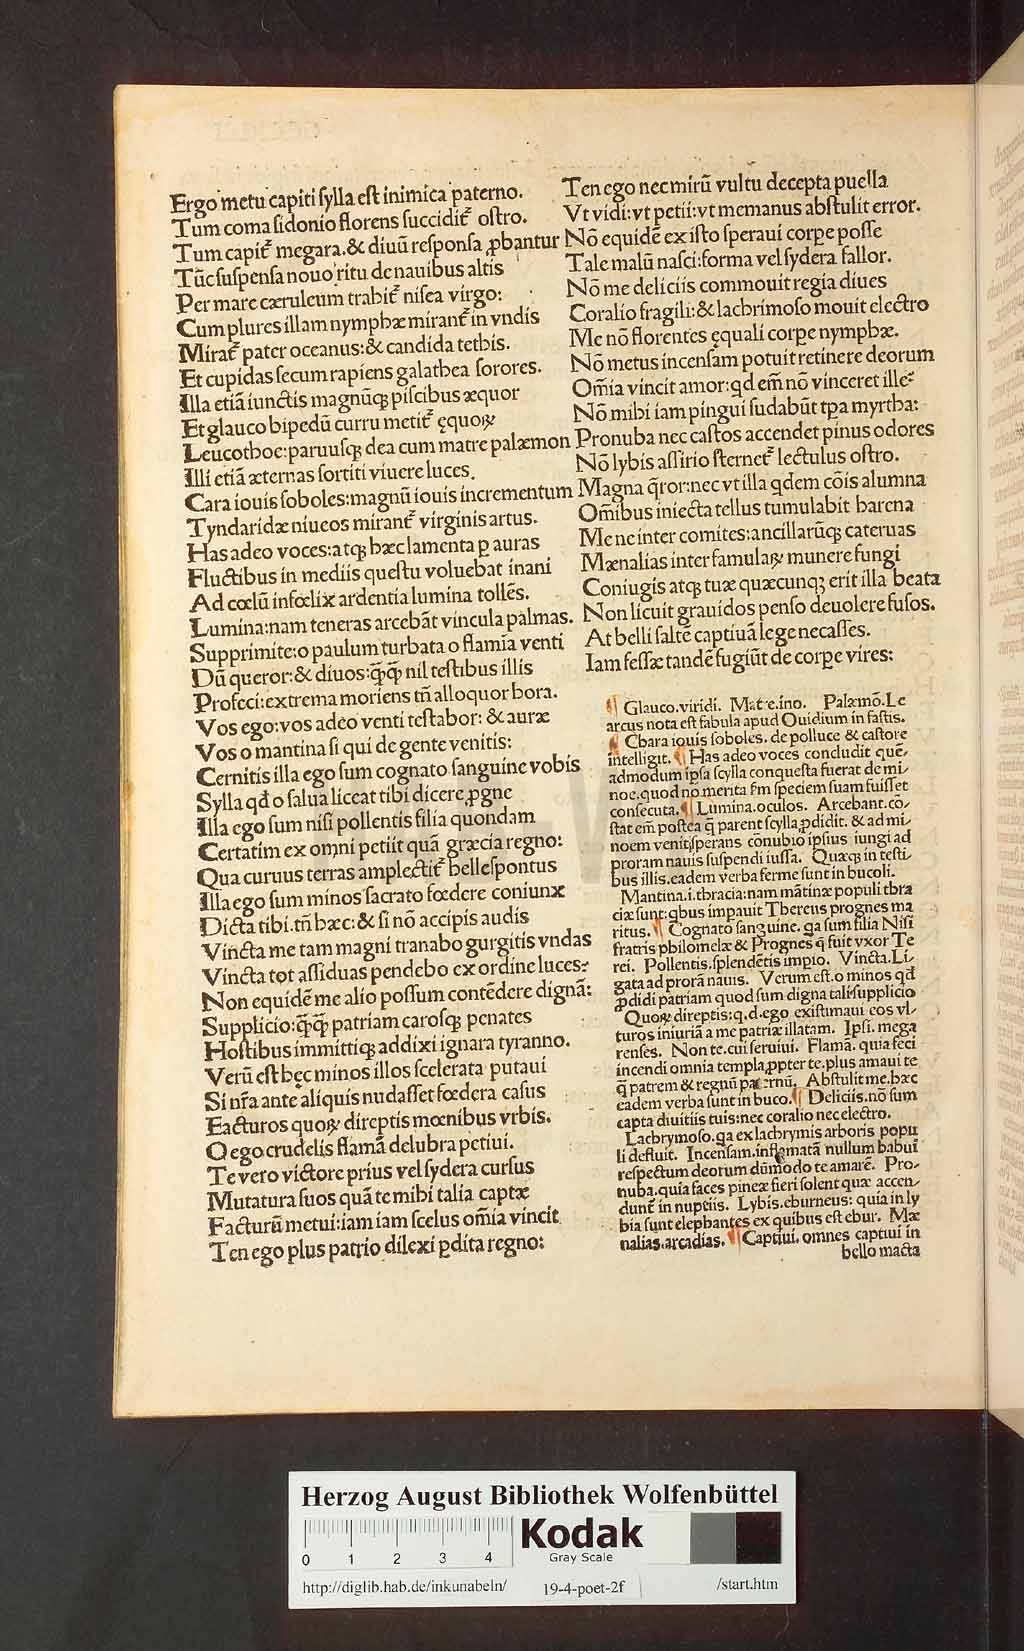 Ergo metu capiti sylla est inimica paterno.
Tum coma sidonio florens succidit᷑ ostro.
Tum capit᷑ megara.&diuũ responsa ꝓbantur
Tũc suspensa nouo ritu de nauibus altis
Per mare cæruleum trahit᷑ nisea virgo:
Cum plures illam nymphæ mirant᷑ in vndis
Mirat᷑ pater oceanus:& candida tethis.
Et cupidas secum rapiens galathea sorores.
Illa etiã iunctis magnũqꝫ piscibus æquor
Et glauco bipedũ curru metit᷑ ęquoꝝ
Leucothoe:paruusqꝫ dea cum matre palæmon
Illi etiã æternas sortiti viuere luces.
Cara iouis soboles:magnũ iouis incrementum
Tyndaridæ niueos mirant᷑ virginis artus.
Has adeo voces:atqꝫ hæc lamenta ꝑ auras
Fluctibus in mediis questu voluebat inani
Ad cœlũ infœlix ardentia lumina tollẽs.
Lumina:nam teneras arcebãt vincula palmas.
Supprimite:o paulum turbata o flamia venti
Dũ queror:& diuos:q̃q̃ nil testibus illis
Profeci:extrema moriens tñ alloquor hora.
Vos ego:vos adeo venti testabor: & auræ
Vos o mantina si qui de gente venitis:
Cernitis illa ego sum cognato sanguine vobis
Sylla qđ o salua liceat tibi dicere ꝓgne
Illa ego sum nisi pollentis filia quondam
Certatim ex omni petiit quã græcia regno:
Qua curuus terras amplectit᷑ hellespontus
Illa ego sum minos sacrato fœdere coniunx
Dicta tibi.tñ hæc:& si nõ accipis audis
Vincta me tam magni tranabo gurgitis vndas
Vincta tot assiduas pendebo ex ordine luces?
Non equidẽ me alio possum contẽdere dignã:
Supplicio:q̃q̃ patriam carosqꝫ penates
Hostibus immittiqꝫ addixi ignara tyranno.
Verũ est hęc minos illos scelerata putaui
Si nr̃a ante aliquis nudasset fœdera casus
Facturos quoꝝ direptis mœnibus vrbis.
O ego crudelis flamã delubra petiui.
Te vero victore prius vel sydera cursus
Mutatura suos quã te mihi talia captæ
Facturũ metui:iam iam scelus om̃ia vincit
Ten ego plus patrio dilexi ꝑdita regno:
Ten ego nec mirũ vultu decepta puella
Vt vidi:vt petii:vt me manus abstulit error.
Nõ equidẽ ex isto speraui corꝑe posse
Tale malũ nasci:forma vel sydera fallor.
Nõ me deliciis commouit regia diues
Coralio fragili:&lachrimoso mouit electro
Me nõ florentes ęquali corꝑe nymphæ.
Nõ metus incensam potuit retinere deorum
Om̃ia vincit amor:qđ em̃ nõ vinceret ille?
Nõ mihi iam pingui sudabũt tp̃a myrtha:
Pronuba nec castos accendet pinus odores
Nõ lybis assirio sternet᷑ lectulus ostro.
Magna q̃ror:nec vt illa qdem cõis alumna
Om̃ibus iniecta tellus tumulabit harena
Me ne inter comites:ancillarũqꝫ cateruas
Mænalias inter famulaꝝ munere fungi
Coniugis atqꝫ tuæ quæcunqꝫ erit illa beata
Non licuit grauidos penso deuolere fusos.
At belli saltẽ captiuã lege necasses.
Iam fessæ tandẽ fugiũt de corꝑe vires:
¶ Glauco.viridi. Matre.ino. Palæmõ.Le
arcus nota est fabula apud Ouidium in fastis.
¶ Chara iouis soboles. de polluce & castore
intelligit. ¶ Has adeo voces concludit quẽ-
admodum ipsa scylla conquesta fuerat de mi-
noe.quod no merita fm speciem suam fuisset
consecuta.¶ Lumina.oculos. Arcebant.cõ-
stat em̃ postea q̃ parent scylla ꝓdidit. & ad mi-
noem venit:sperans cõnubio ipsius iungi ad
proram nauis suspendi iussa. Quæqꝫ in testi-
bus illis.eadem verba ferme sunt in bucoli.
Mantina.i.thracia:nam mãtinæ populi thra
ciæ sunt:qbus impauit Thereus prognes ma
ritus.¶ Cognato sanguine. qa sum filia Nisi
fratris philomelæ & Prognes q̃ fuit vxor Te
rei. Pollentis.splendẽtis impio. Vincta.Li-
gata ad prorã nauis. Verum est.o minos qđ
ꝓdidi patriam quod sum digna tali supplicio
Quoꝝ direptis:q.d.ego existimaui eos vl-
turos iniuriã a me patriæ illatam. Ipsi. mega
renses. Non te.cui seruiui. Flamã. quia feci
incendi omnia templa ꝓpter te.plus amaui te
q̃ patrem & regnũ paternũ. Abstulit me.hæc
eadem verba sunt in buco.¶ Deliciis.nõ sum
capta diuitiis tuis:nec coralio nec electro.
Lachrymoso.qa ex lachrymis arboris popu
li defluit. Incensam.inflamatã nullum habui
respectum deorum dũmodo te amarẽ. Pro-
nuba.quia faces pineæ fieri solent quæ accen-
dunt᷑ in nuptiis. Lybis.eburneus: quia in ly
bia sunt elephantes ex quibus est ebur. Mæ
nalias.arcadias.¶ Captiui. omnes captiui in
bello macta
Herzog August Bibliothek Wolfenbüttel
0 1 2 3 4
Kodak
Gray Scale
http://diglib.hab.de/inkunabeln/ 19-4-poet-2f /start.htm